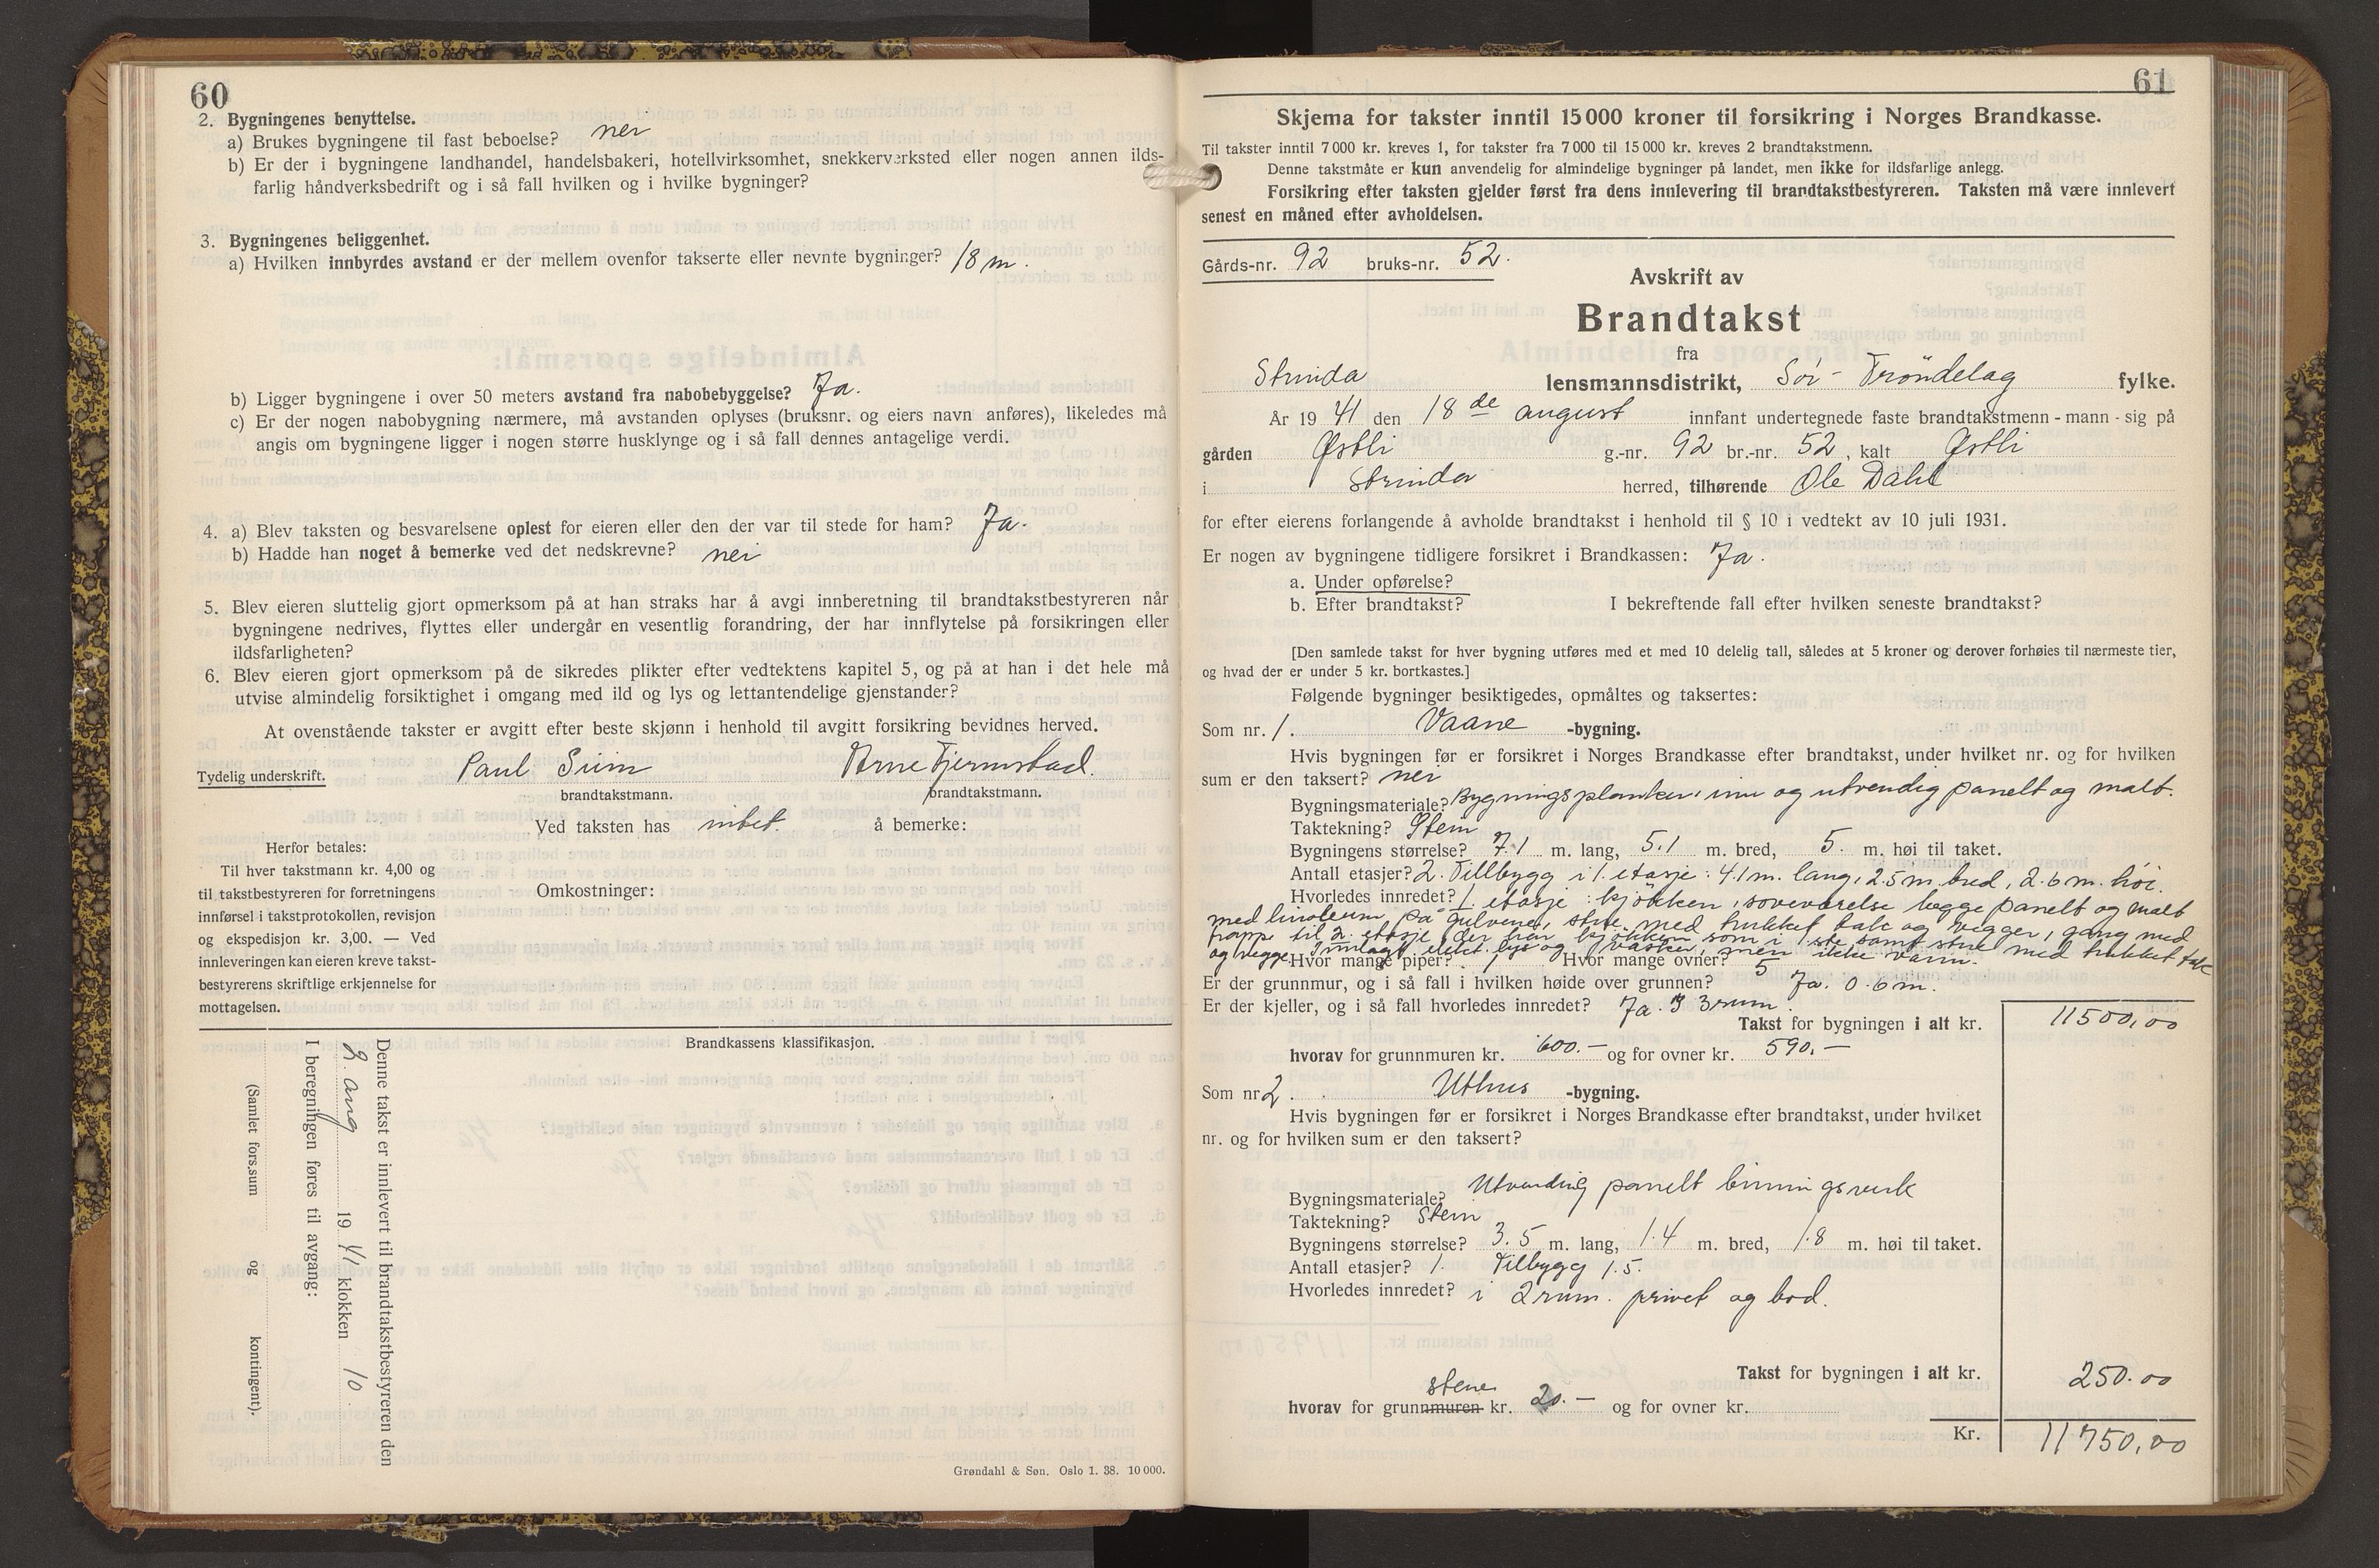 60
2. Bygningenes benyttelse.
a) Brukes bygningene til fast beboelse? nei
b) Er der i bygningene landhandel, handelsbakeri, hotellvirksomhet, snekkerverksted eller nogen annen ilds-
farlig håndverksbedrift og i så fall hvilken og i hvilke bygninger?
3. Bygningenes beliggenhet.
a) Hvilken innbyrdes avstand er der mellem ovenfor takserte eller nevnte bygninger? 18 m.
b) Ligger bygningene i over 50 meters avstand fra nabobebyggelse? Ja.
c) Er der nogen nabobygning nærmere, må avstanden oplyses (bruksnr. og eiers navn anføres), likeledes må
angis om bygningene ligger i nogen større husklynge og i så fall dennes antagelige verdi.
4. a) Blev taksten og besvarelsene oplest for eieren eller den der var til stede for ham? Ja.
b) Hadde han noget å bemerke ved det nedskrevne? nei
5. Blev eieren sluttelig gjort opmerksom på at han straks har å avgi innberetning til brandtakstbestyreren når
bygningene nedrives, flyttes eller undergår en vesentlig forandring, der har innflytelse på forsikringen eller
ildsfarligheten?
6. Blev eieren gjort opmerksom på de sikredes plikter efter vedtektens kapitel 5, og på at han i det hele må
utvise almindelig forsiktighet i omgang med ild og lys og lettantendelige gjenstander?
At ovenstående takster er avgitt efter beste skjønn i henhold til avgitt forsikring bevidnes herved.
Tydelig underskrift. Paul Suim Arne Fjermstad.
brandtakstmann. brandtakstmann.
Ved taksten has intet å bemerke:
Herfor betales:
Til hver takstmann kr. 4,00 og
til takstbestyreren for forretningens
innførsel i takstprotokollen, revisjon
og ekspedisjon kr. 3,00. — Ved
innleveringen kan eieren kreve takst-
bestyrerens skriftlige erkjennelse for
mottagelsen.
Omkostninger:
Brandkassens klassifikasjon.
Denne takst er innlevert til brandtakstbestyreren den
2. aug 19 41 klokken 10
I beregningen føres til avgang:
(Samlet fors.sum og kontingent).
Grøndahl & Søn. Oslo 1. 38. 10 000.
61
Skjema for takster inntil 15 000 kroner til forsikring i Norges Brandkasse.
Til takster inntil 7 000 kr. kreves 1, for takster fra 7 000 til 15 000 kr. kreves 2 brandtakstmenn.
Denne takstmåte er kun anvendelig for almindelige bygninger på landet, men ikke for ildsfarlige anlegg.
Forsikring efter taksten gjelder først fra dens innlevering til brandtakstbestyreren. Taksten må være innlevert
senest en måned efter avholdelsen.
Gårds-nr. 92 bruks-nr. 52.
Avskrift av
Brandtakst
fra
Strinda lensmannsdistrikt, Sør-Trøndelag fylke.
År 19 41 den 18 de august innfant undertegnede faste brandtakstmenn - mann - sig på
gården Østli g.-nr. 92 br.-nr. 52, kalt Østli
i Strinda herred, tilhørende Ole Dahl
for efter eierens forlangende å avholde brandtakst i henhold til § 10 i vedtekt av 10 juli 1931.
Er nogen av bygningene tidligere forsikret i Brandkassen: Ja.
a. Under opførelse?
b. Efter brandtakst? I bekreftende fall efter hvilken seneste brandtakst?
[Den samlede takst for hver bygning utføres med et med 10 delelig tall, således at 5 kroner og derover forhøies til nærmeste tier,
og hvad der er under 5 kr. bortkastes.]
Følgende bygninger besiktigedes, opmåltes og taksertes:
Som nr. 1. Vaane -bygning.
Hvis bygningen før er forsikret i Norges Brandkasse efter brandtakst, under hvilket nr. og for hvilken
sum er den taksert? nei
Bygningsmateriale? Bygningsplanker, inn og utvendig panelt og malt.
Taktekning? Stein
Bygningens størrelse? 7.1 m. lang, 5.1 m. bred, 5. m. høi til taket.
Antall etasjer? 2. Tillbygg i 1. etasje: 4.1 m. lang, 2.5 m. bred, 2.6 m. høi.
Hvorledes innredet? 1. etasje: kjøkken, soveværelse begge panelt og malt
med linoleum på gulvene, stue med trukket tak og vegger, gang med
trapp til 2. etasje der har kjøkken som i 1ste samt stue med trukket tak
og vegge. Innlagt elekt. lys og vasker, men ikke vann.
Hvor mange piper? 1 Hvor mange ovner? 5
Er der grunnmur, og i så fall i hvilken høide over grunnen? Ja. 0.6 m.
Er der kjeller, og i så fall hvorledes innredet? Ja. I 3 rum.
Takst for bygningen i alt kr. 11500,00
hvorav for grunnmuren kr. 600.— og for ovner kr. 590.—
Som nr 2. Uthus -bygning.
Hvis bygningen før er forsikret i Norges Brandkasse efter brandtakst, under hvilket
nr. og for hvilken sum er den taksert?
Bygningsmateriale? Utvendig panelt binningsverk
Taktekning? Stein
Bygningens størrelse? 3.5 m. lang, 1.4 m. bred, 1.8 m. høi til taket.
Antall etasjer? 1. Tilbygg 1.5.
Hvorledes innredet? i 2 rum. privet og bod.
Takst for bygningen i alt kr. 250.00
stene
hvorav for grunnmuren kr. 20.— og for ovner kr.
Kr. 11750,00